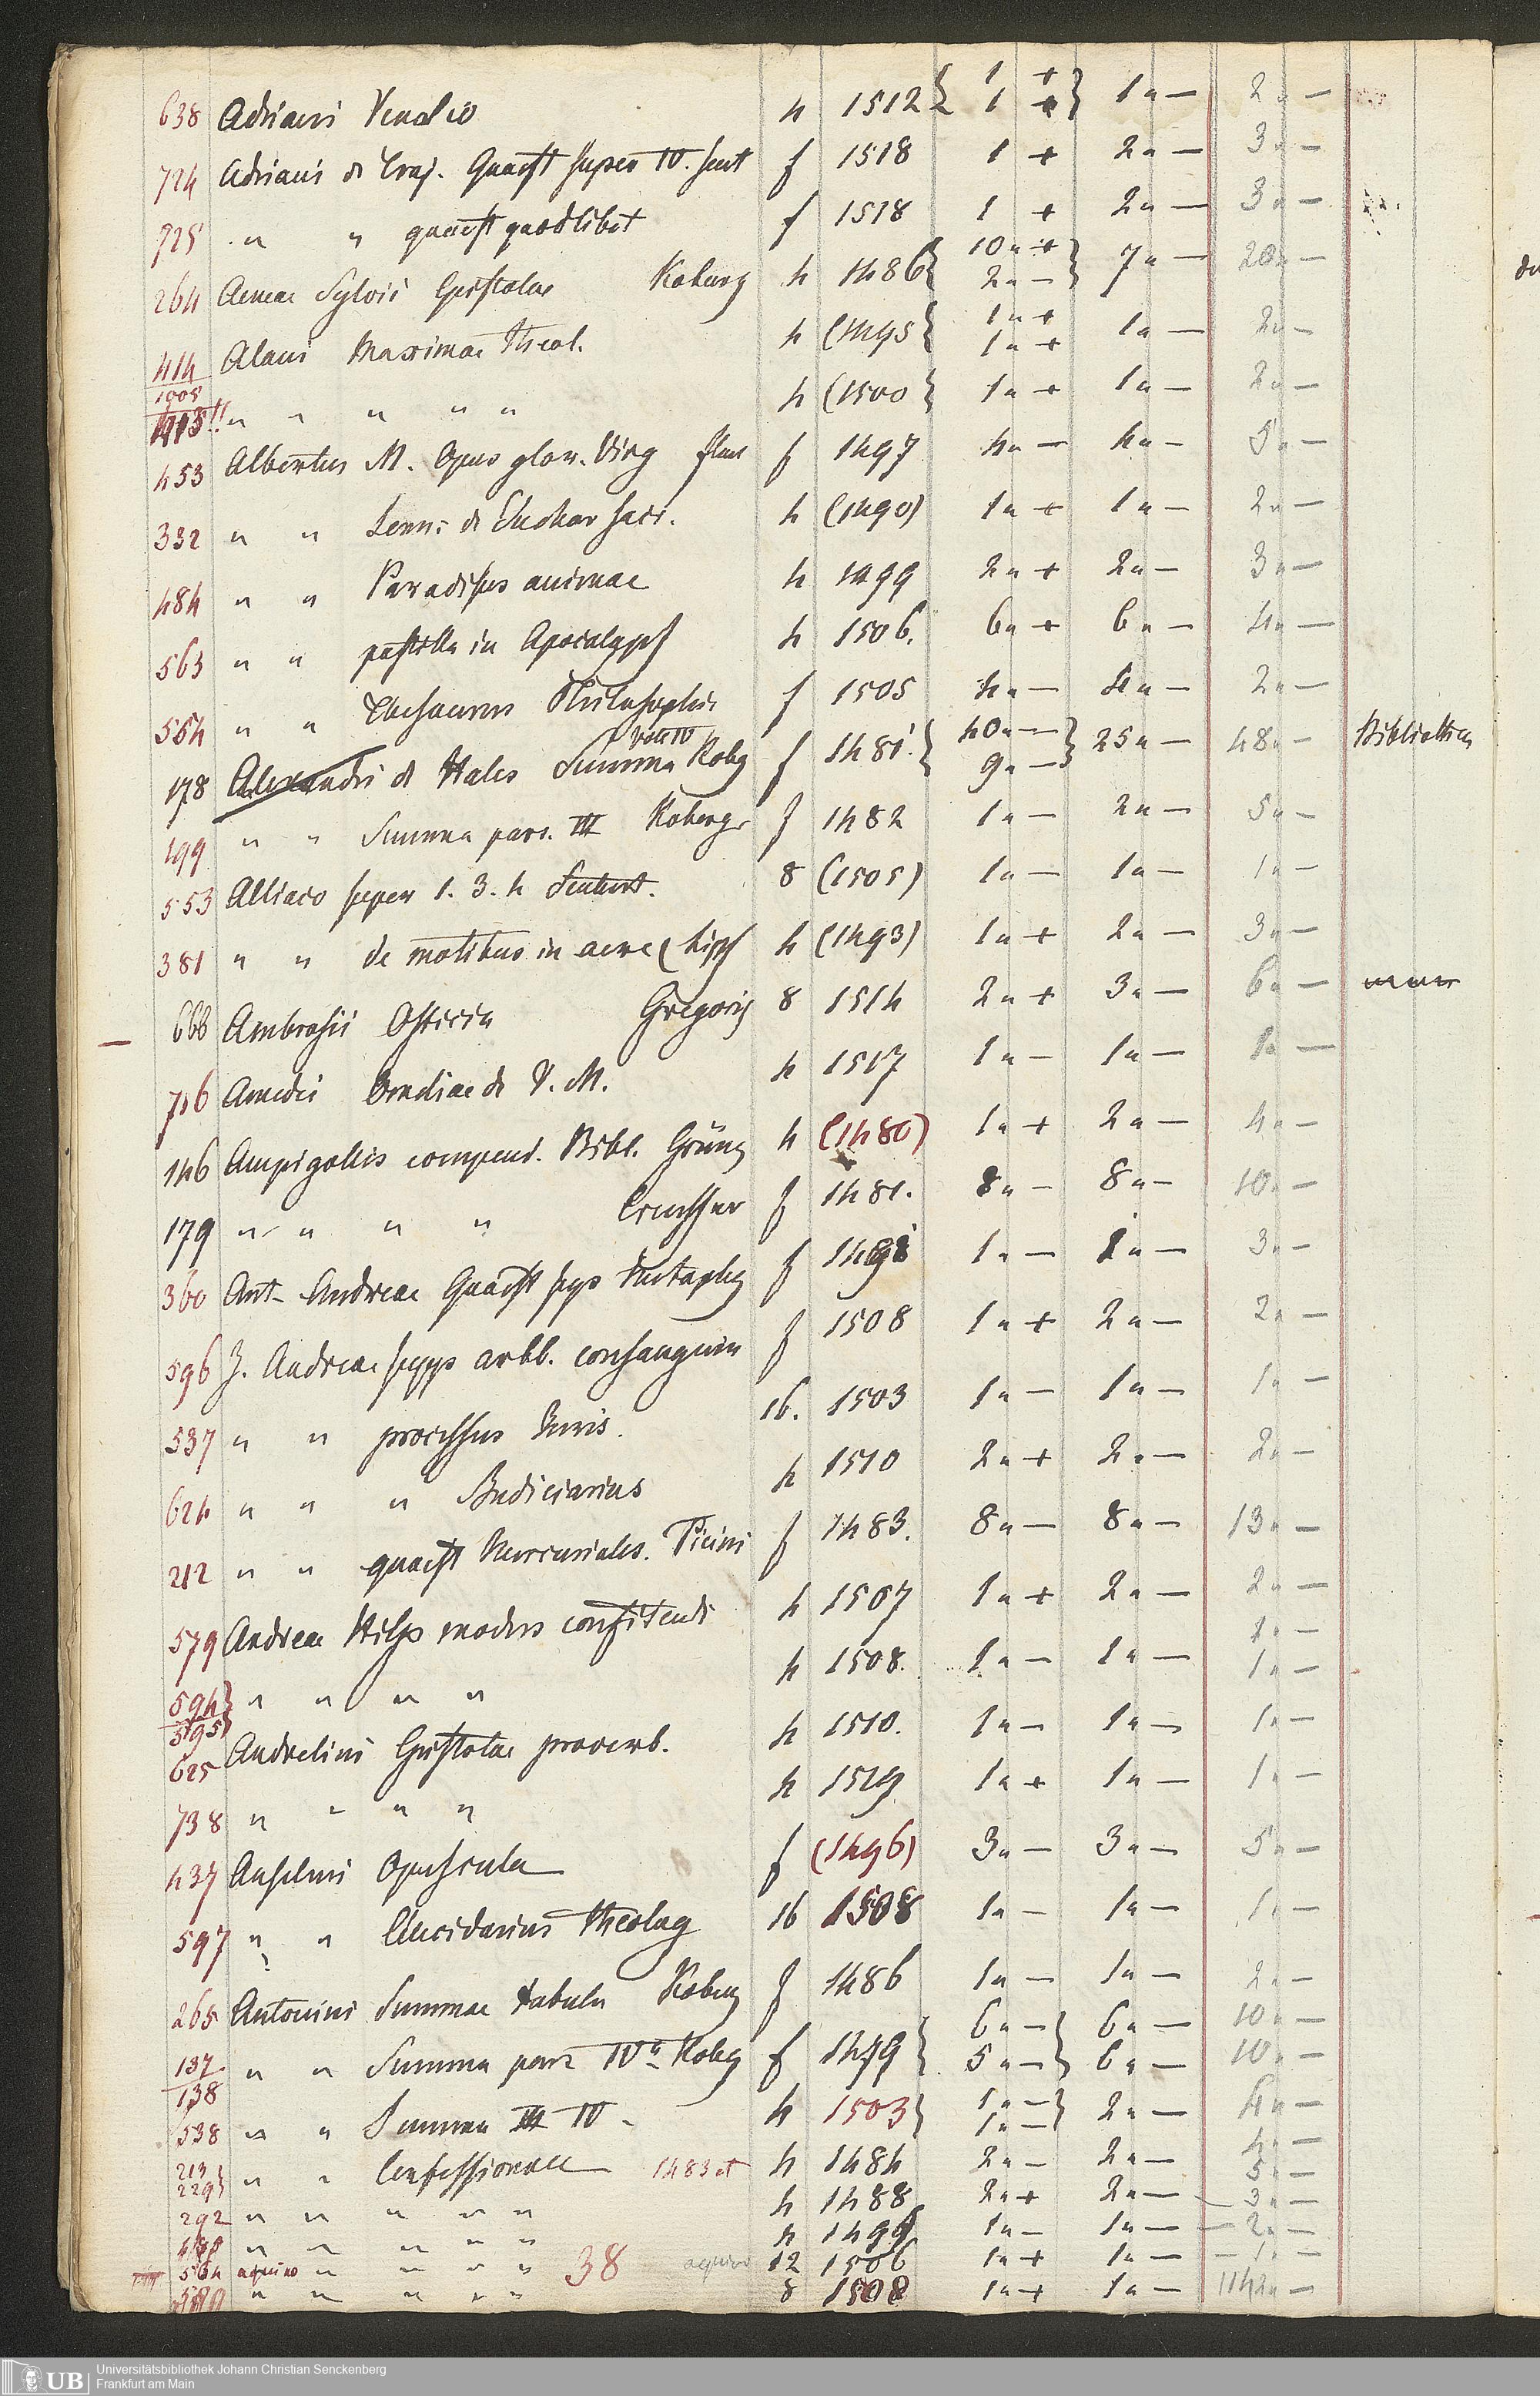 638 Adriani Venatio 4 1512 { 1 + 1 + } 1 " — 2 " —
724 Adriani de Traj. Quaest super IV. sent f 1518 1 + 2 " — 3 " —
725 " " quaest quodlibet f 1518 1 + 2 " — 3 " —
264 Aeneae Sylvii Epistolae Koburg 4 1486 { 10 " + 2 " — } 7 " — 20 " —
414 Alani Maximae Theol. 4 (1495 { 1 " + 1 " + 1 " — 2 " —
" " " " 4 (1500 } 1 " + 1 " — 2 " —
453 Albertus M. Opus glor. Virg f 1497 4 " — 4 " — 5 " —
332 " " Serm: de Euchar sacr. 4 (1490) 1 " + 1 " — 2 " —
484 " " Paradisus animae 4 1499 2 " + 2 " — 3 " —
563 " " postilla in Apocalyps 4 1506. 6 " + 6 " — 4 " —
564 " " Thesaurus Philosophiae f 1505 4 " — 4 " — 2 " —
178 Alexandri de Hales Summa Voll IV Kobg f 1481. { 40 " — 9 " — } 25 " — 48 " — Bibliothek
199 " " Summa pars. III Koberg. f 1482 1 " — 2 " — 5 " —
553 Alliaco super 1. 3. 4 Sentent. 8 (1505) 1 " — 1 " — 1 " —
381 " " de motibus in aere (Lips 4 (1493) 1 " + 2 " — 3 " —
668 Ambrosii Officia Gregorij 8 1514 2 " + 3 " — 6 " —
716 Amedei Omeliae de V. M. 4 1517 1 " — 1 " — 1 " —
146 Ampigollis compend. Bibl. Grüng 4 (1480) 1 " + 2 " — 4 " —
179 " " " " Creussner f 1481. 8 " — 8 " — 10 " —
360 Ant. Andreae Quaest sup metaphy f 1 " — 1 " — 3 " —
596 J. Andreae super arbb. consanguin f 1508 1 " + 2 " — 2 " —
537 " " processus Juris. 16. 1503 1 " — 1 " — 1 " —
624 " " " Judiciarius 4 1510 2 " + 2 " — 2 " —
212 " " quaest Mercuriales. Ticini f 1483. 8 " — 8 " — 13 " —
579 Andreae Hisp modus confitendi 4 1507 1 " + 2 " — 2 " —
594 595 } " " " " 4 1508. 1 " — 1 " — 1 " — 1 " —
625 Andrelini Epistolae proverb. 4 1510. 1 " — 1 " — 1 " —
738 " " " " 4 1519 1 " + 1 " — 1 " —
437 Anselmi Opuscula f (1496) 3 " — 3 " — 5 " —
597 " " Elucidarius theolog 16 1508 1 " — 1 " — 1 " —
265 Antonini Summae tabula Koburg f 1486 1 " — 1 " — 2 " —
137 138 " " Summa pars IVa Kobg f 1479 { 6 " — 5 " — } 6 " — 6 " — 10 " — 10 " —
538 " " Summa III IV 4 1503 } 1 " — 1 " — } 2 " — 4 " —
213 229 } " " Confessionale 1483 et 4 1484 2 " — 2 " — 4 " — 5 " —
292 " " " " " 4 1488 2 " + 2 " — 3 " —
" " " " " 4 1499 1 " — 1 " — 2 " —
564 aquino " " " " 38 aquino 12 1506 1 " + 1 " — 1 " —
580 " " " " " 8 1508 1 " + 1 " — 1142 " —
UB Universitätsbibliothek Johann Christian Senckenberg
Frankfurt am Main